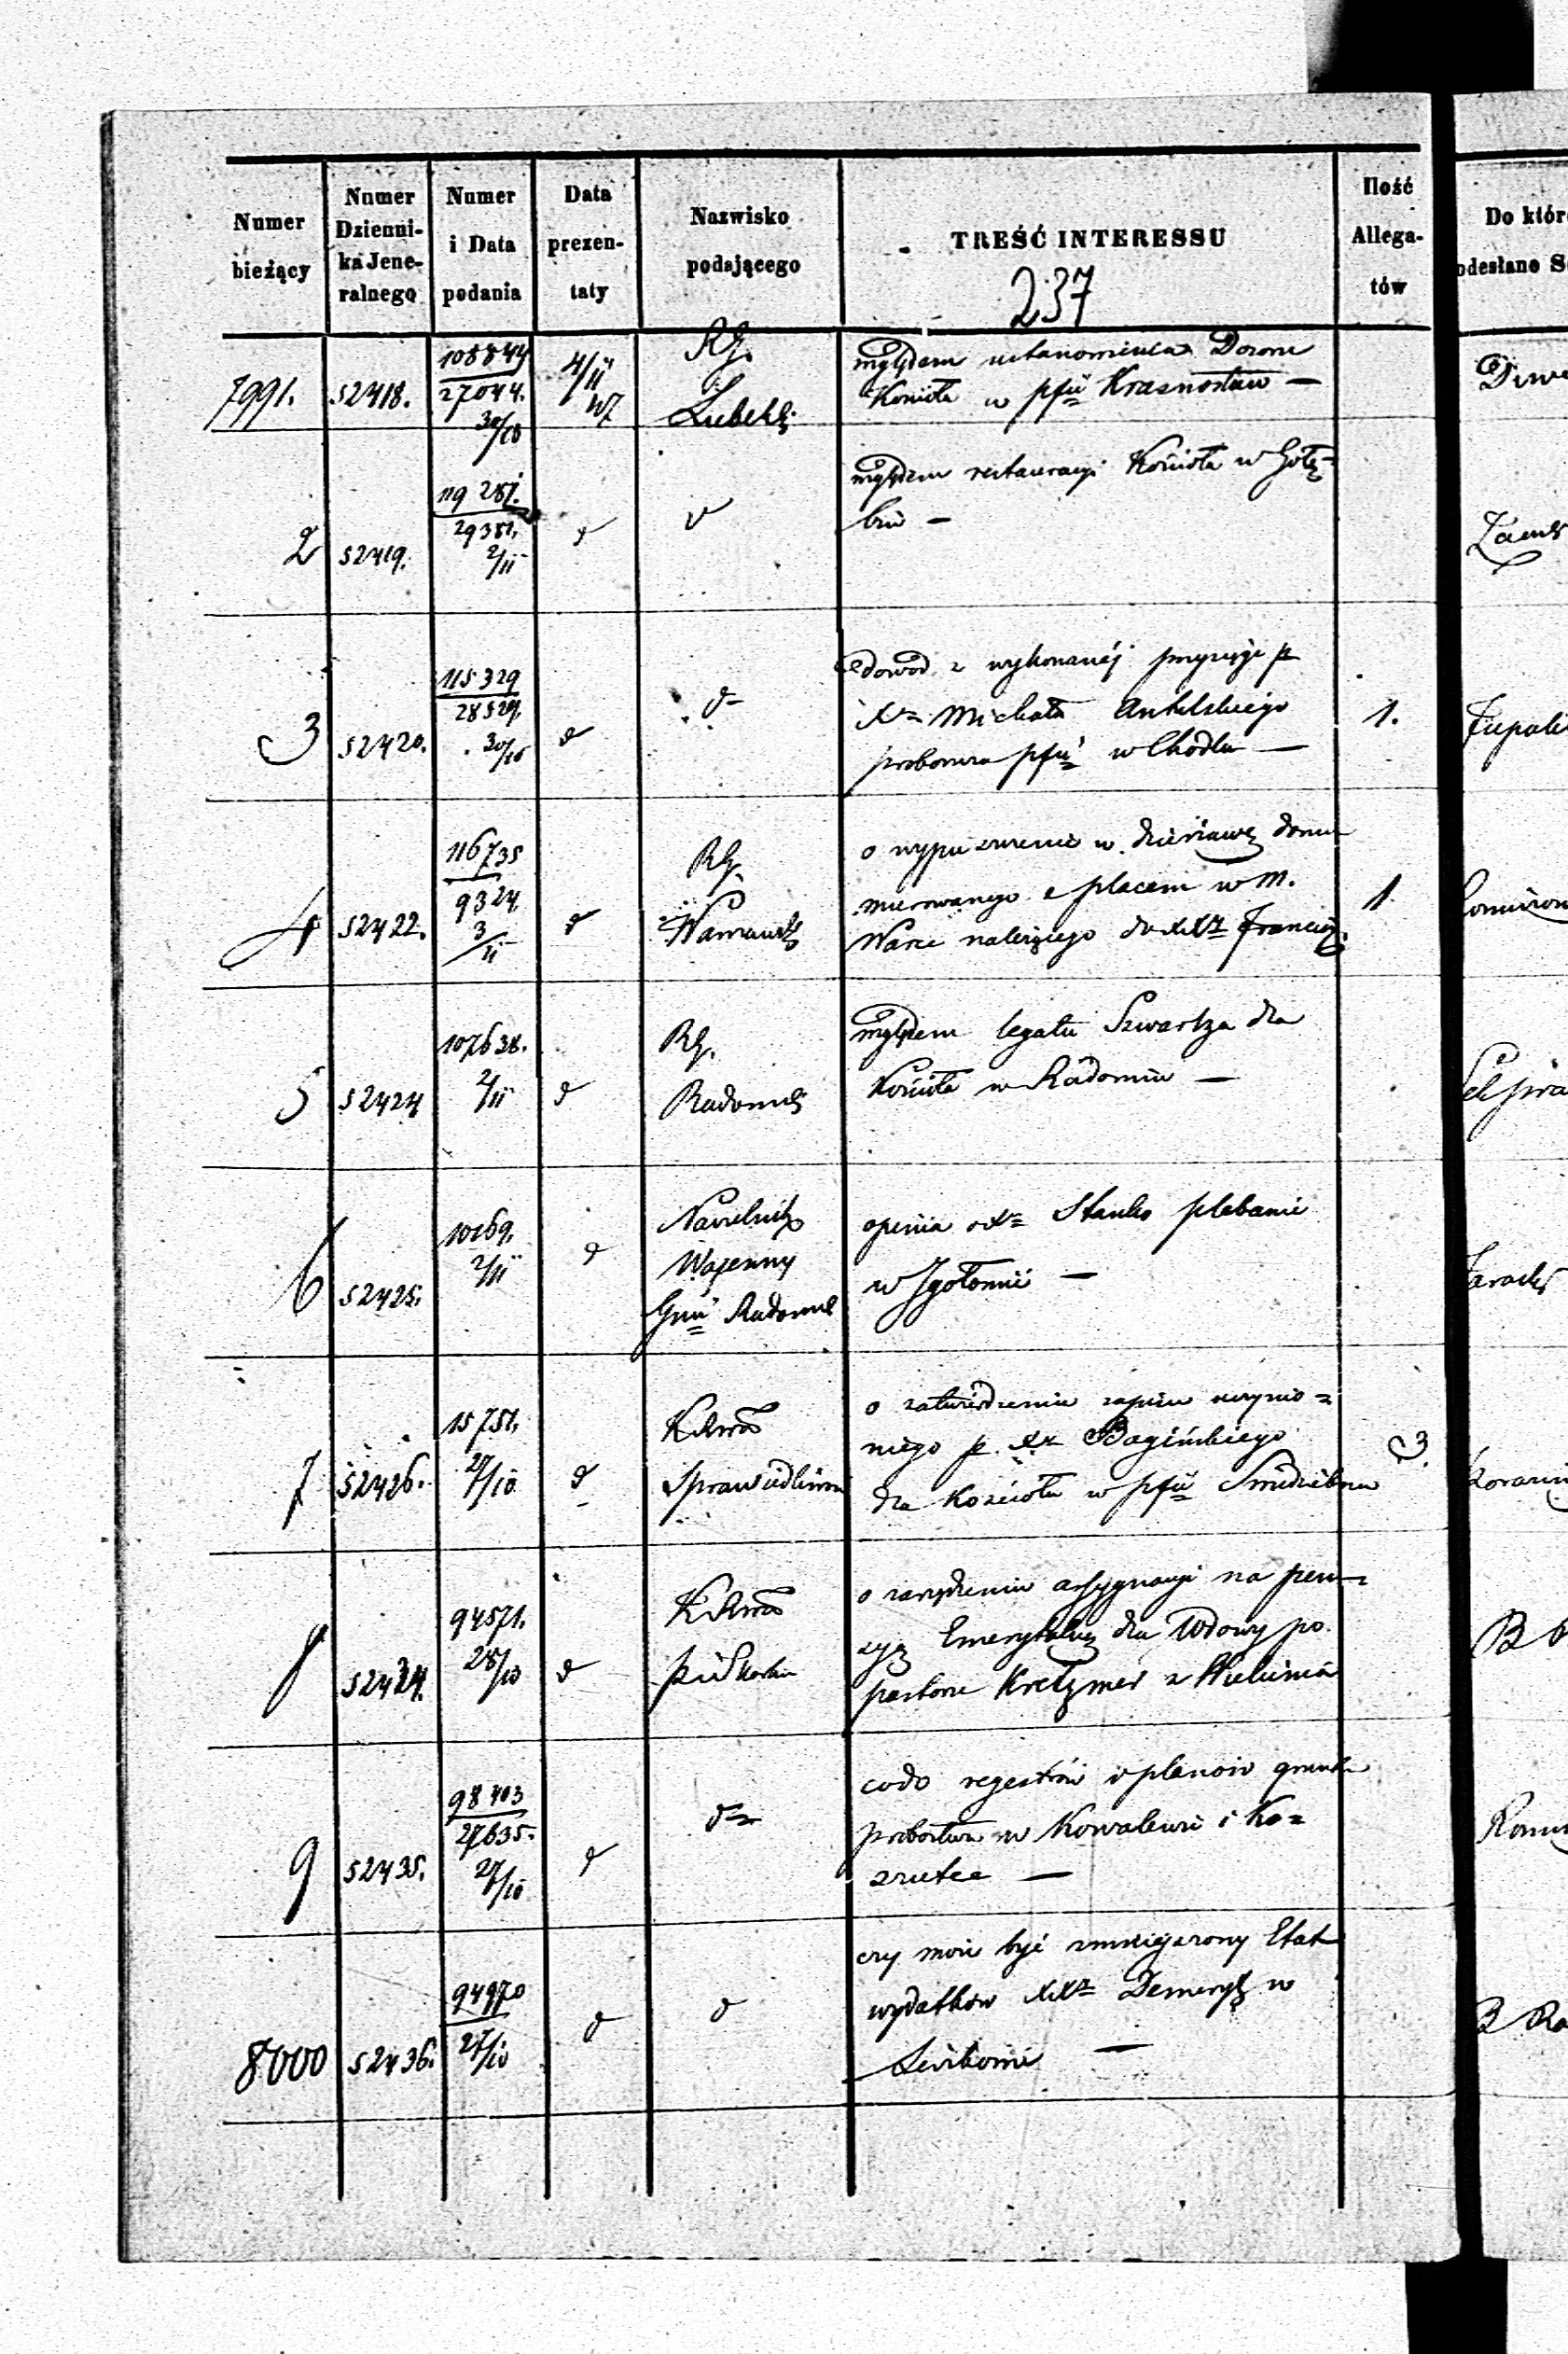 Numer bieżący
Numer Dzienni-
ka Jene-
ralnego
Numer i Data podania
Data prezen-
taty
Nazwisko podającego
TREŚĆ INTERESSU
Ilość Allega-
tów
Do któr
odesłano S
237
7991.
52418.
108844
27044.
30/10
4/11
RG.
Lubelsk
względem ustanowienia Dozoru
Kościoła w pfii Krasnostaw —
2
52419.
119 281.
29351.
2/11
względem restauracyi Kościoła w Gołę=
biu —
3
52420.
115329
28529.
30/10
d
d
dowód z wykonanéj przysięgi p
Xa Michała
proboszcza pfii w Chodlu —
1.
4
52422.
116735
9324
3/11
d
RG.
Warszawsk
o wypuszczenie w dzierżawę domu
murowanego z placem w m.
Warce należącego do XXy Francisz.
1
5
52424
107638.
2/11
d
RG.
Radomsk
względem legatu Szwartza dla
Kościoła w Radomiu —
6
52425.
10169.
2/11
d
Naczelnik
Wojenny
Gnii Radoms
opinia o Xu Stanko plebanie
w Igołomii —
7
52426.
15751.
27/10
d
KRwa
Sprawiedliwości
o zatwierdzenie zapisu uczynio=
nego p. Xa Bagińskiego
dla Kościoła w pfii
3.
8
52434.
94571.
28/10
d
KRwa
P i Skarbu
o zarządzenie assygnacyi na pen=
syą Emerytalną dla Wdowy po
pastorze Kretzmer z Wielunia
9
52435.
98403
27635.
27/10
d
d
co do regestrów i planów gruntu
probostwa w Kowalewie i Ko=
8000
52436.
94970
27/10
d
d
czy może być zmniejszony Etat
wydatków XXy Demeryt w